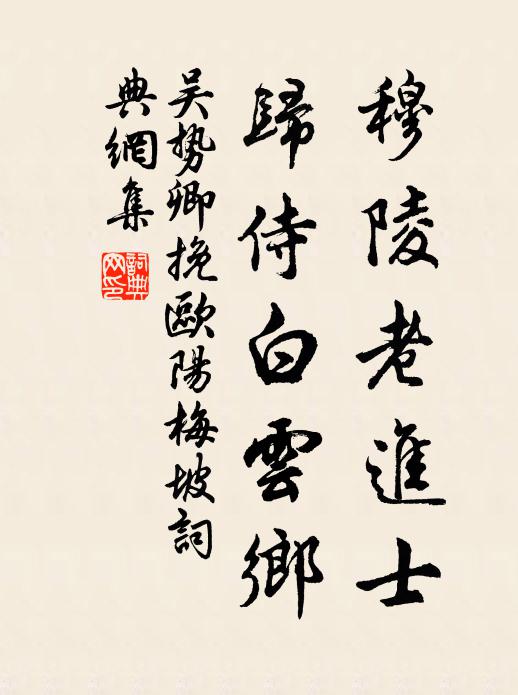 穆陵老進士
歸侍白雲鄉
吳勢卿挽歐陽梅坡詞
典網集
詞典網印